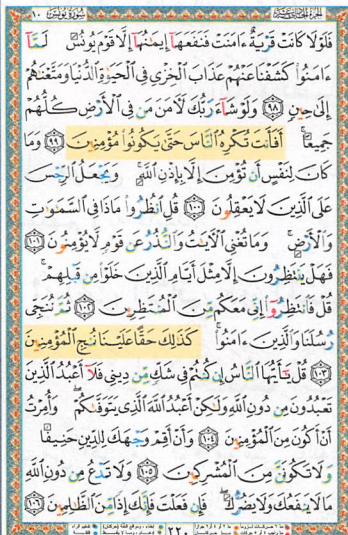 سورة يونس ١٠
فَلَوْلَا كَانَتْ قَرْيَةٌ ءَامَنَتْ فَنَفَعَهَآ إِيمَٰنُهَآ إِلَّا قَوْمَ يُونُسَ لَمَّآ
ءَامَنُوا۟ كَشَفْنَا عَنْهُمْ عَذَابَ ٱلْخِزْىِ فِى ٱلْحَيَوٰةِ ٱلدُّنْيَا وَمَتَّعْنَٰهُمْ
إِلَىٰ حِينٍ ٩٨ وَلَوْ شَآءَ رَبُّكَ لَءَامَنَ مَن فِى ٱلْأَرْضِ كُلُّهُمْ
جَمِيعًا ۚ أَفَأَنتَ تُكْرِهُ ٱلنَّاسَ حَتَّىٰ يَكُونُوا۟ مُؤْمِنِينَ ٩٩ وَمَا
كَانَ لِنَفْسٍ أَن تُؤْمِنَ إِلَّا بِإِذْنِ ٱللَّهِ ۚ وَيَجْعَلُ ٱلرِّجْسَ
عَلَى ٱلَّذِينَ لَا يَعْقِلُونَ ١٠٠ قُلِ ٱنظُرُوا۟ مَاذَا فِى ٱلسَّمَٰوَٰتِ
وَٱلْأَرْضِ ۚ وَمَا تُغْنِى ٱلْءَايَٰتُ وَٱلنُّذُرُ عَن قَوْمٍ لَّا يُؤْمِنُونَ ١٠١
فَهَلْ يَنتَظِرُونَ إِلَّا مِثْلَ أَيَّامِ ٱلَّذِينَ خَلَوْا۟ مِن قَبْلِهِمْ ۚ
قُلْ فَٱنتَظِرُوٓا۟ إِنِّى مَعَكُم مِّنَ ٱلْمُنتَظِرِينَ ١٠٢ ثُمَّ نُنَجِّى
رُسُلَنَا وَٱلَّذِينَ ءَامَنُوا۟ ۚ كَذَٰلِكَ حَقًّا عَلَيْنَا نُنجِ ٱلْمُؤْمِنِينَ
١٠٣ قُلْ يَٰٓأَيُّهَا ٱلنَّاسُ إِن كُنتُمْ فِى شَكٍّ مِّن دِينِى فَلَآ أَعْبُدُ ٱلَّذِينَ
تَعْبُدُونَ مِن دُونِ ٱللَّهِ وَلَٰكِنْ أَعْبُدُ ٱللَّهَ ٱلَّذِى يَتَوَفَّىٰكُمْ ۖ وَأُمِرْتُ
أَنْ أَكُونَ مِنَ ٱلْمُؤْمِنِينَ ١٠٤ وَأَنْ أَقِمْ وَجْهَكَ لِلدِّينِ حَنِيفًا
وَلَا تَكُونَنَّ مِنَ ٱلْمُشْرِكِينَ ١٠٥ وَلَا تَدْعُ مِن دُونِ ٱللَّهِ
مَا لَا يَنفَعُكَ وَلَا يَضُرُّكَ ۖ فَإِن فَعَلْتَ فَإِنَّكَ إِذًا مِّنَ ٱلظَّٰلِمِينَ ١٠٦
٢٢٠